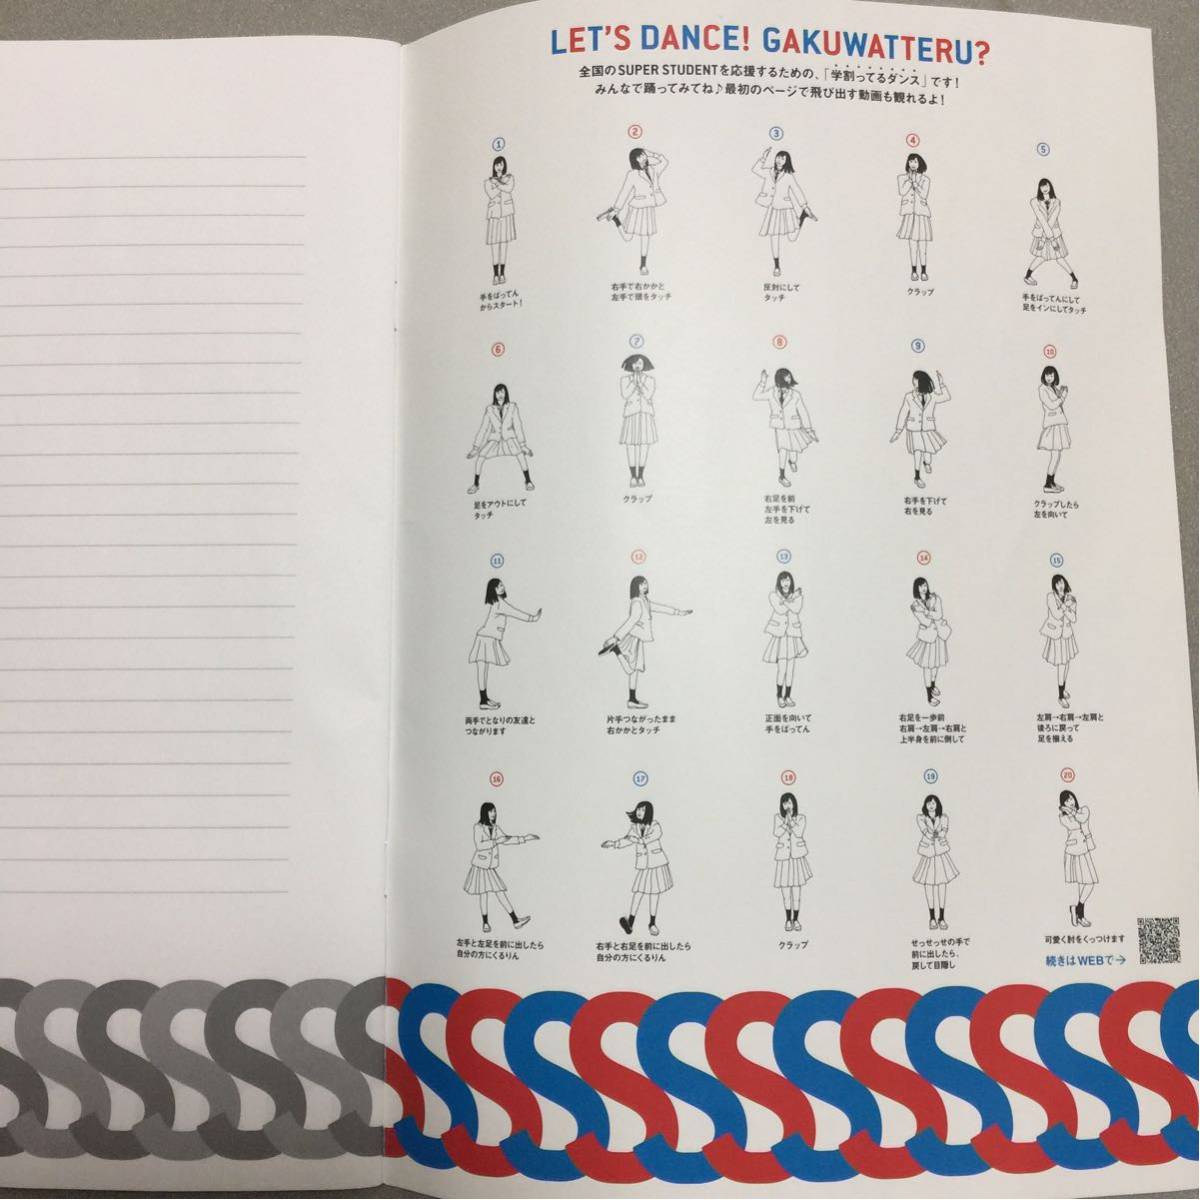 LET'S DANCE! GAKUWATTERU?
全国のSUPER STUDENTを応援するための、「学割ってるダンス」です!
みんなで踊ってみてね♪最初のページで飛び出す動画も観れるよ!
①
手をばってん
からスタート!
②
右手で右かかと
左手で頭をタッチ
③
反対にして
タッチ
④
クラップ
⑤
手をばってんにして
足をインにしてタッチ
⑥
足をアウトにして
タッチ
⑦
クラップ
⑧
右足を前
左手を下げて
左を見る
⑨
右手を下げて
右を見る
⑩
クラップしたら
左を向いて
⑪
両手でとなりの友達と
つながります
⑫
片手つながったまま
右かかとタッチ
⑬
正面を向いて
手をばってん
⑭
右足を一歩前
右肩→左肩→右肩と
上半身を前に倒して
⑮
左肩→右肩→左肩と
後ろに戻って
足を揃える
⑯
左手と左足を前に出したら
自分の方にくるりん
⑰
右手と右足を前に出したら
自分の方にくるりん
⑱
クラップ
⑲
せっせっせの手で
前に出したら、
戻して目隠し
⑳
可愛く肘をくっつけます
続きはWEBで→